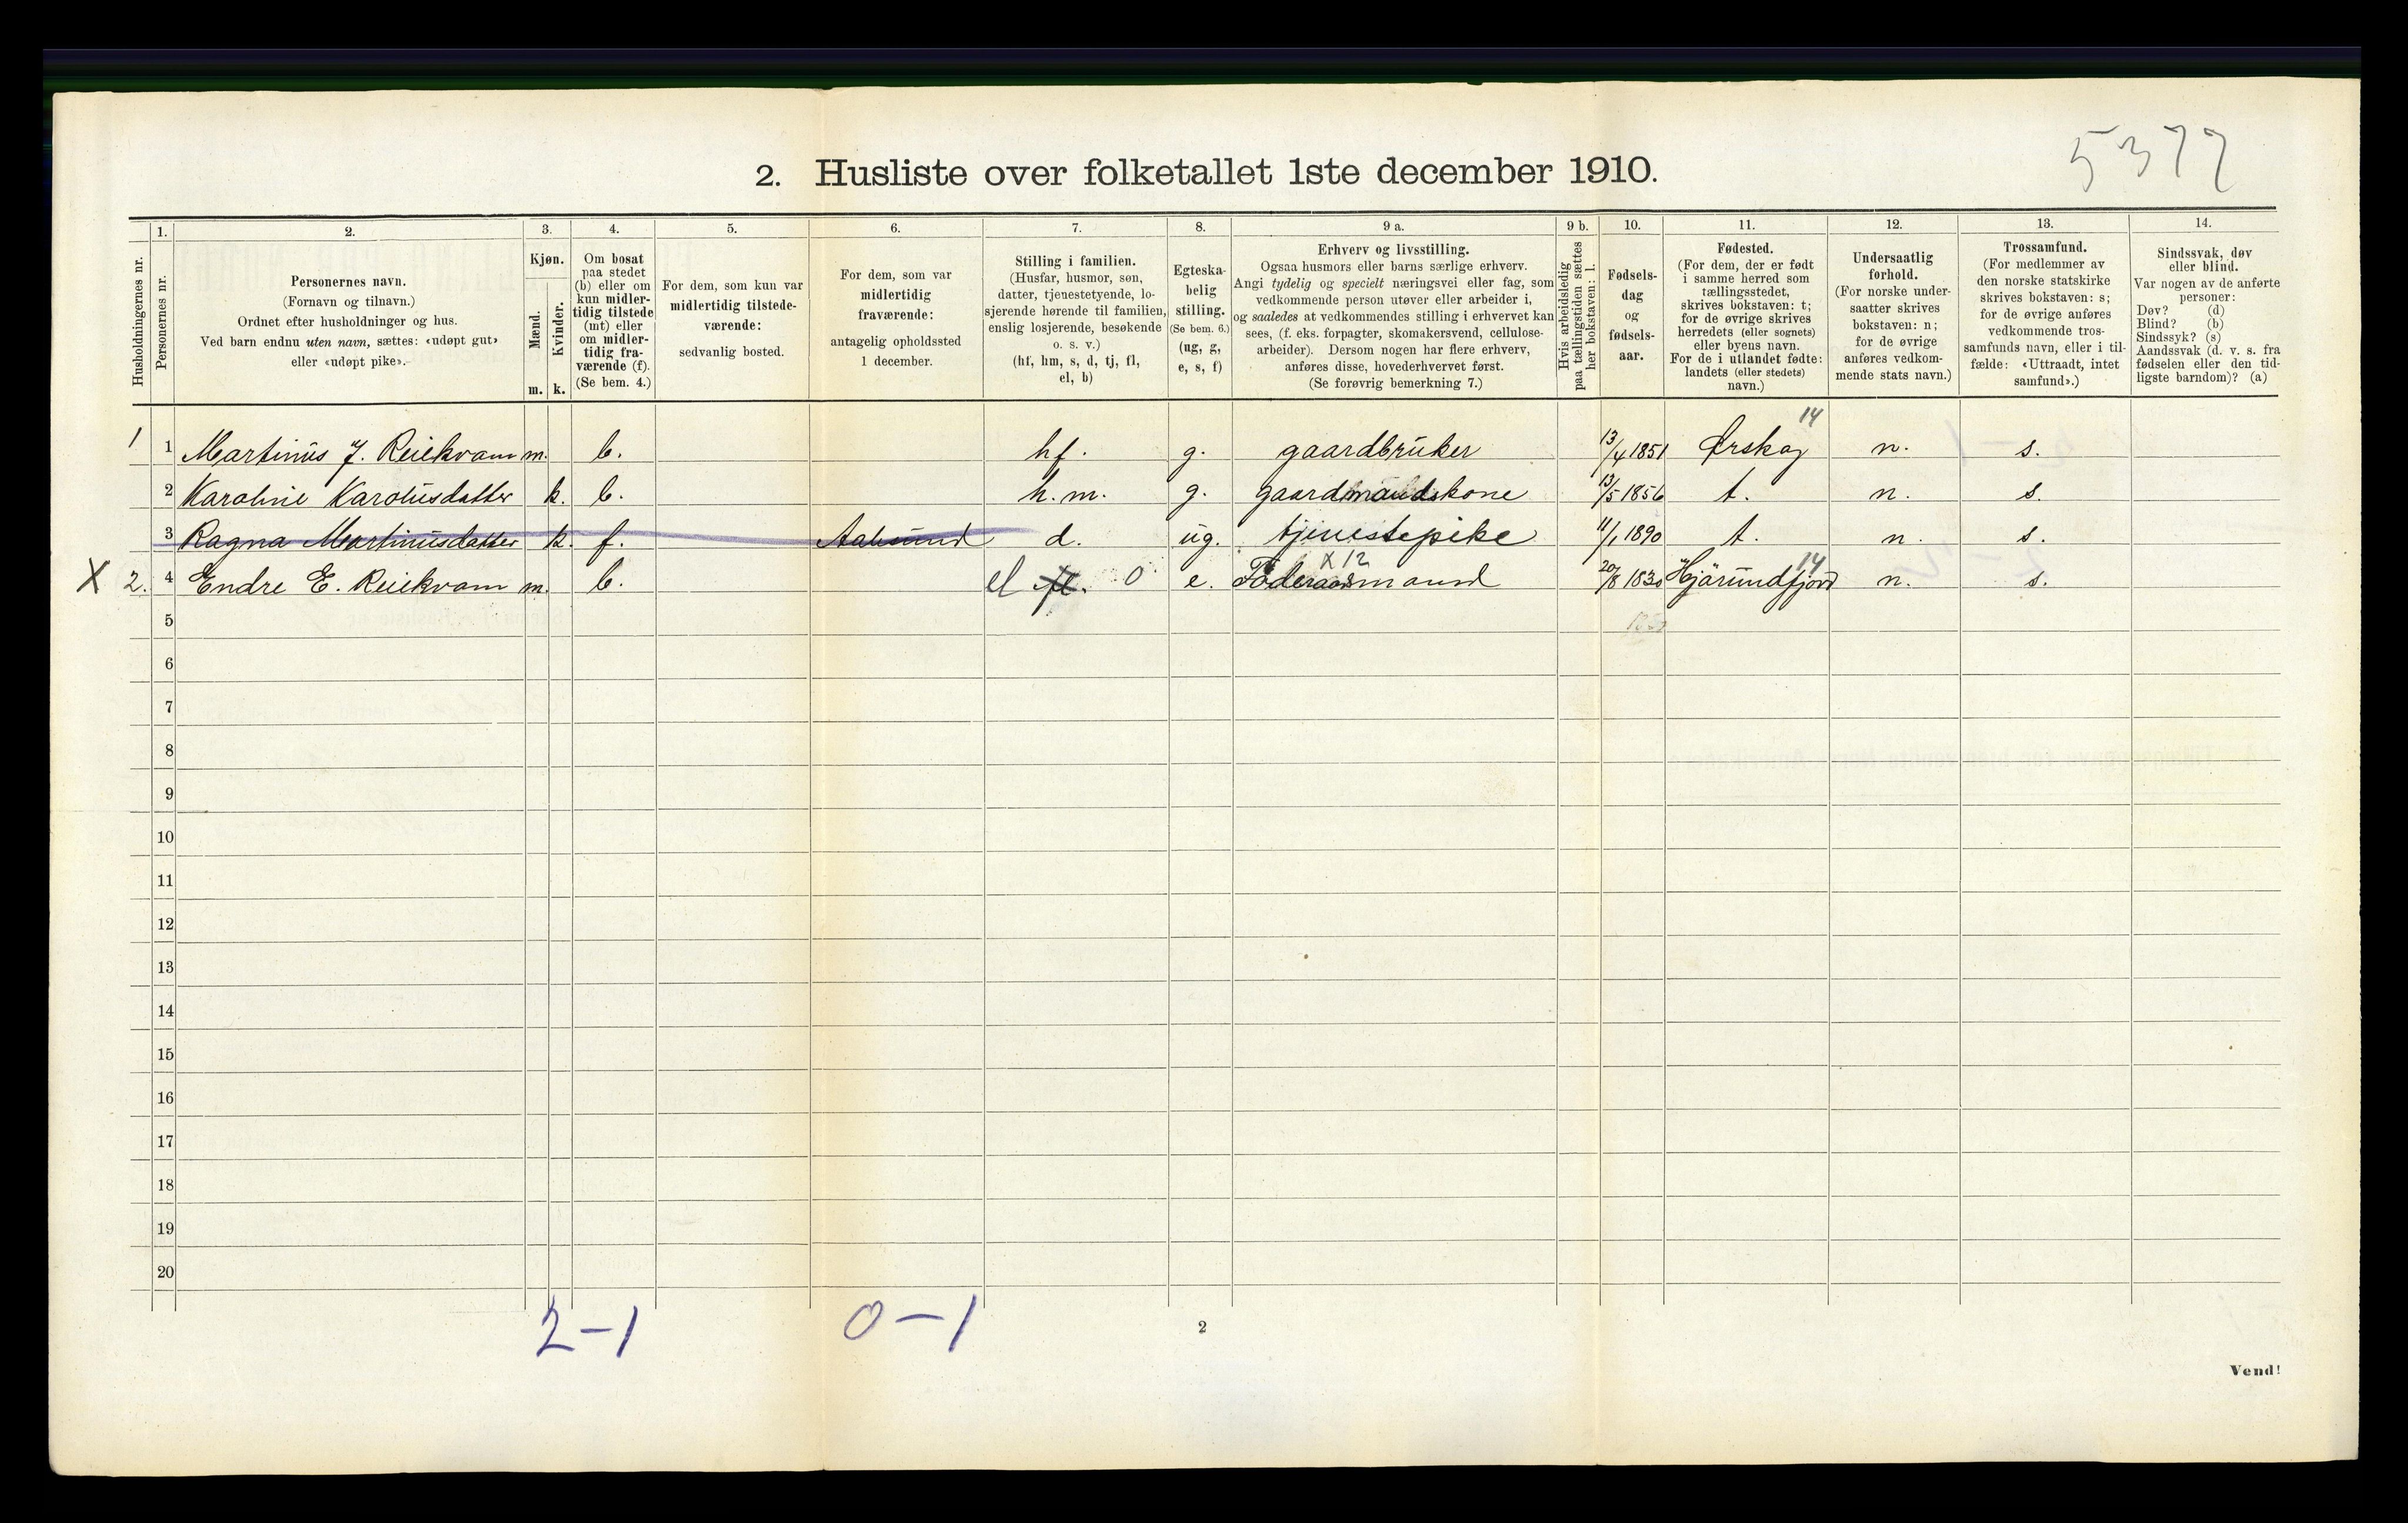 5377
2. Husliste over folketallet 1ste december 1910.
Husholdningernes nr.
1.
Personernes nr.
2.
Personernes navn.
(Fornavn og tilnavn.)
Ordnet efter husholdninger og hus.
Ved barn endnu uten navn, sættes: «udøpt gut»
eller «udøpt pike».
3.
Kjøn.
Mænd.
Kvinder.
m. k.
4.
Om bosat
paa stedet
(b) eller om
kun midler-
tidig tilstede
(mt) eller
om midler-
tidig fra-
værende (f).
(Se bem. 4.)
5.
For dem, som kun var
midlertidig tilstede-
værende:
sedvanlig bosted.
6.
For dem, som var
midlertidig
fraværende:
antagelig opholdssted
1 december.
7.
Stilling i familien.
(Husfar, husmor, søn,
datter, tjenestetyende, lo-
sjerende hørende til familien,
enslig losjerende, besøkende
o. s. v.)
(hf, hm, s, d, tj, fl,
el, b)
8.
Egteska-
belig
stilling.
(Se bem. 6.)
(ug, g,
e, s, f)
9 a.
Erhverv og livsstilling.
Ogsaa husmors eller barns særlige erhverv.
Angi tydelig og specielt næringsvei eller fag, som
vedkommende person utøver eller arbeider i,
og saaledes at vedkommendes stilling i erhvervet kan
sees, (f. eks. forpagter, skomakersvend, cellulose-
arbeider). Dersom nogen har flere erhverv,
anføres disse, hovederhvervet først.
(Se forøvrig bemerkning 7.)
9 b.
Hvis arbeidsledig
paa tællingstiden sættes
her bokstaven: l.
10.
Fødsels-
dag
og
fødsels-
aar.
11.
Fødested.
(For dem, der er født
i samme herred som
tællingsstedet,
skrives bokstaven: t;
for de øvrige skrives
herredets (eller sognets)
eller byens navn.
For de i utlandet fødte:
landets (eller stedets)
navn.)
12.
Undersaatlig
forhold.
(For norske under-
saatter skrives
bokstaven: n;
for de øvrige
anføres vedkom-
mende stats navn.)
13.
Trossamfund.
(For medlemmer av
den norske statskirke
skrives bokstaven: s;
for de øvrige anføres
vedkommende tros-
samfunds navn, eller i til-
fælde: «Uttraadt, intet
samfund».)
14.
Sindssvak, døv
eller blind.
Var nogen av de anførte
personer:
Døv? (d)
Blind? (b)
Sindssyk? (s)
Aandssvak (d. v. s. fra
fødselen eller den tid-
ligste barndom)? (a)
14
1 1 Martinus J. Reiekvam m. b. hf. g. gaardbruker 13/4 1851 Ørskog n. s.
2 Karoline Karolusdatter k. b. h.m. g. gaardmandskone 13/5 1856 t. n. s.
3 Ragna Martinusdatter k. f. Aalesund d. ug. tjenestepike 11/1 1890 t. n. s.
X 12 14
X 2. 4 Endre E. Reiekvam m. b. el fl. 0 e. Föderaadsmand 20/8 1830 Hjörundfjord n. s.
5
6
7
8
9
10
11
12
13
14
15
16
17
18
19
20
2-1 0-1
2
Vend!